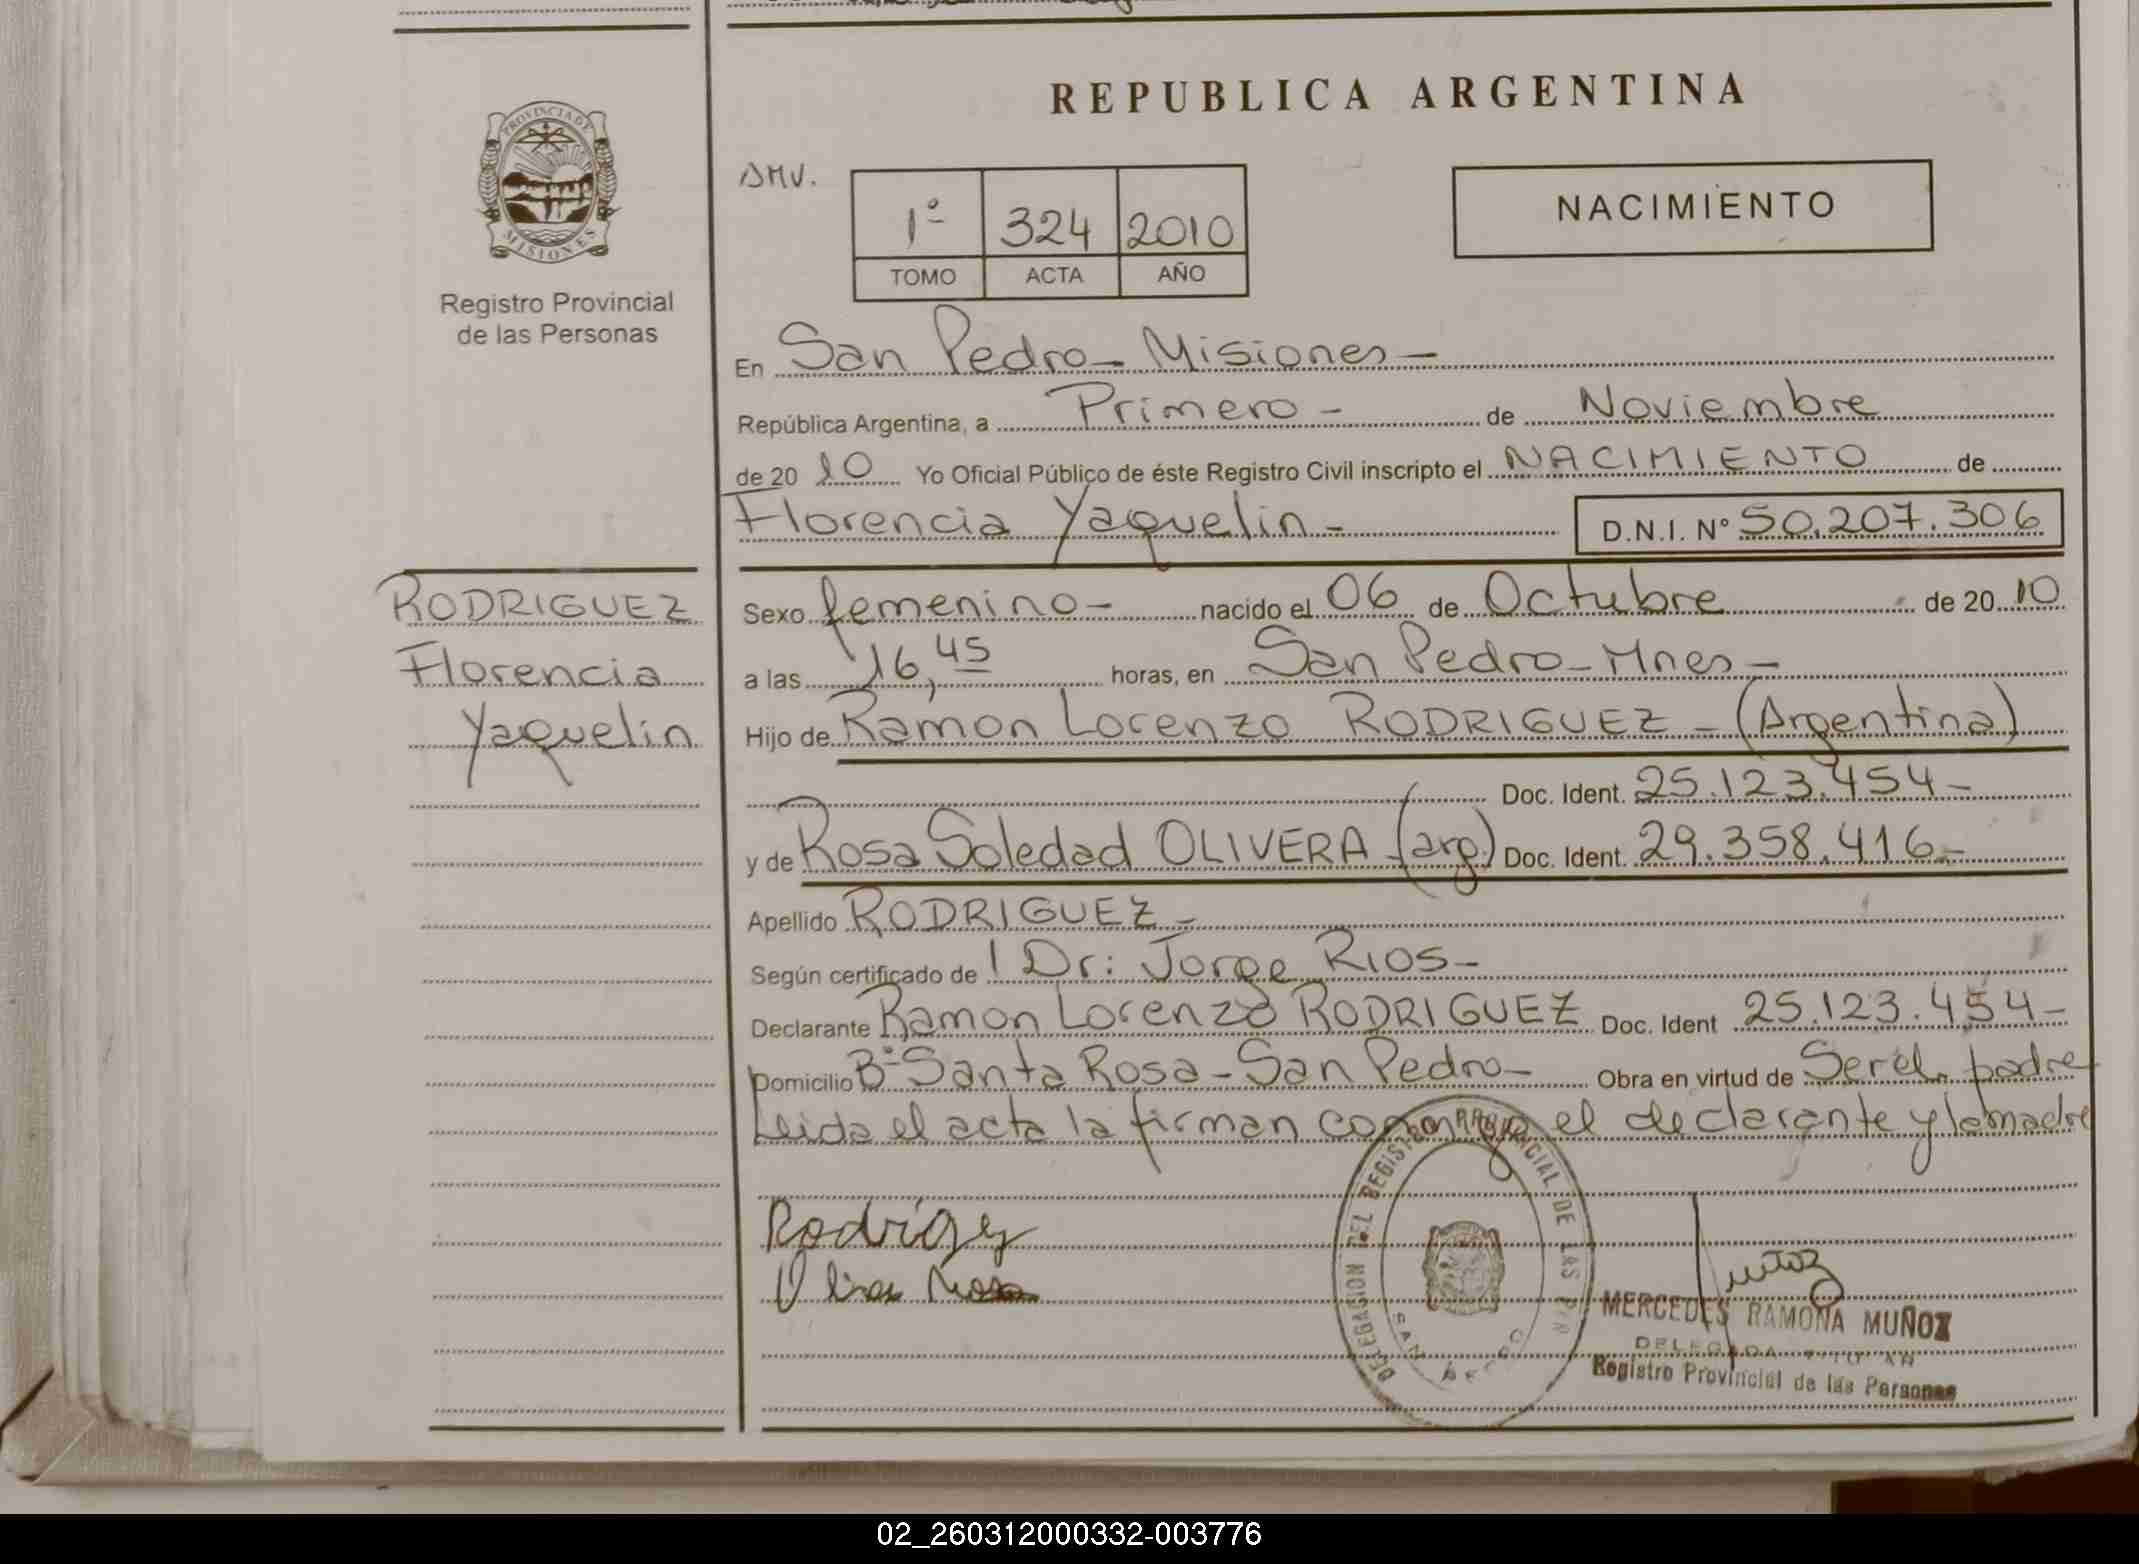 REPUBLICA ARGENTINA
PROVINCIA DE
MISIONES
Registro Provincial
de las Personas
1º 324 2010
TOMO ACTA AÑO
NACIMIENTO
En San Pedro - Misiones -
República Argentina, a Primero - de Noviembre
de 20 10 Yo Oficial Público de éste Registro Civil inscripto el NACIMIENTO de
Florencia Yaquelin - D.N.I. Nº 50.207.306
RODRIGUEZ
Florencia
Yaquelin
Sexo femenino - nacido el 06 de Octubre de 20 10
a las 16,45 horas, en San Pedro - Mnes -
Hijo de Ramon Lorenzo RODRIGUEZ - (Argentina)
Doc. Ident. 25.123.454 -
y de Rosa Soledad OLIVERA (arg) Doc. Ident. 29.358.416 -
Apellido RODRIGUEZ -
Según certificado de l Dr: Jorge RIOS -
Declarante Ramon Lorenzo RODRIGUEZ Doc. Ident 25.123.454 -
Domicilio Bº Santa Rosa - San Pedro - Obra en virtud de Ser el padre
Leida el acta la firman conmigo el declarante y la madre
DELEGACION DEL REGISTRO PROVINCIAL DE LAS PER
SAN PEDRO
MERCEDES RAMONA MUÑOZ
DELEGADA TITULAR
Registro Provincial de las Personas
02_260312000332-003776